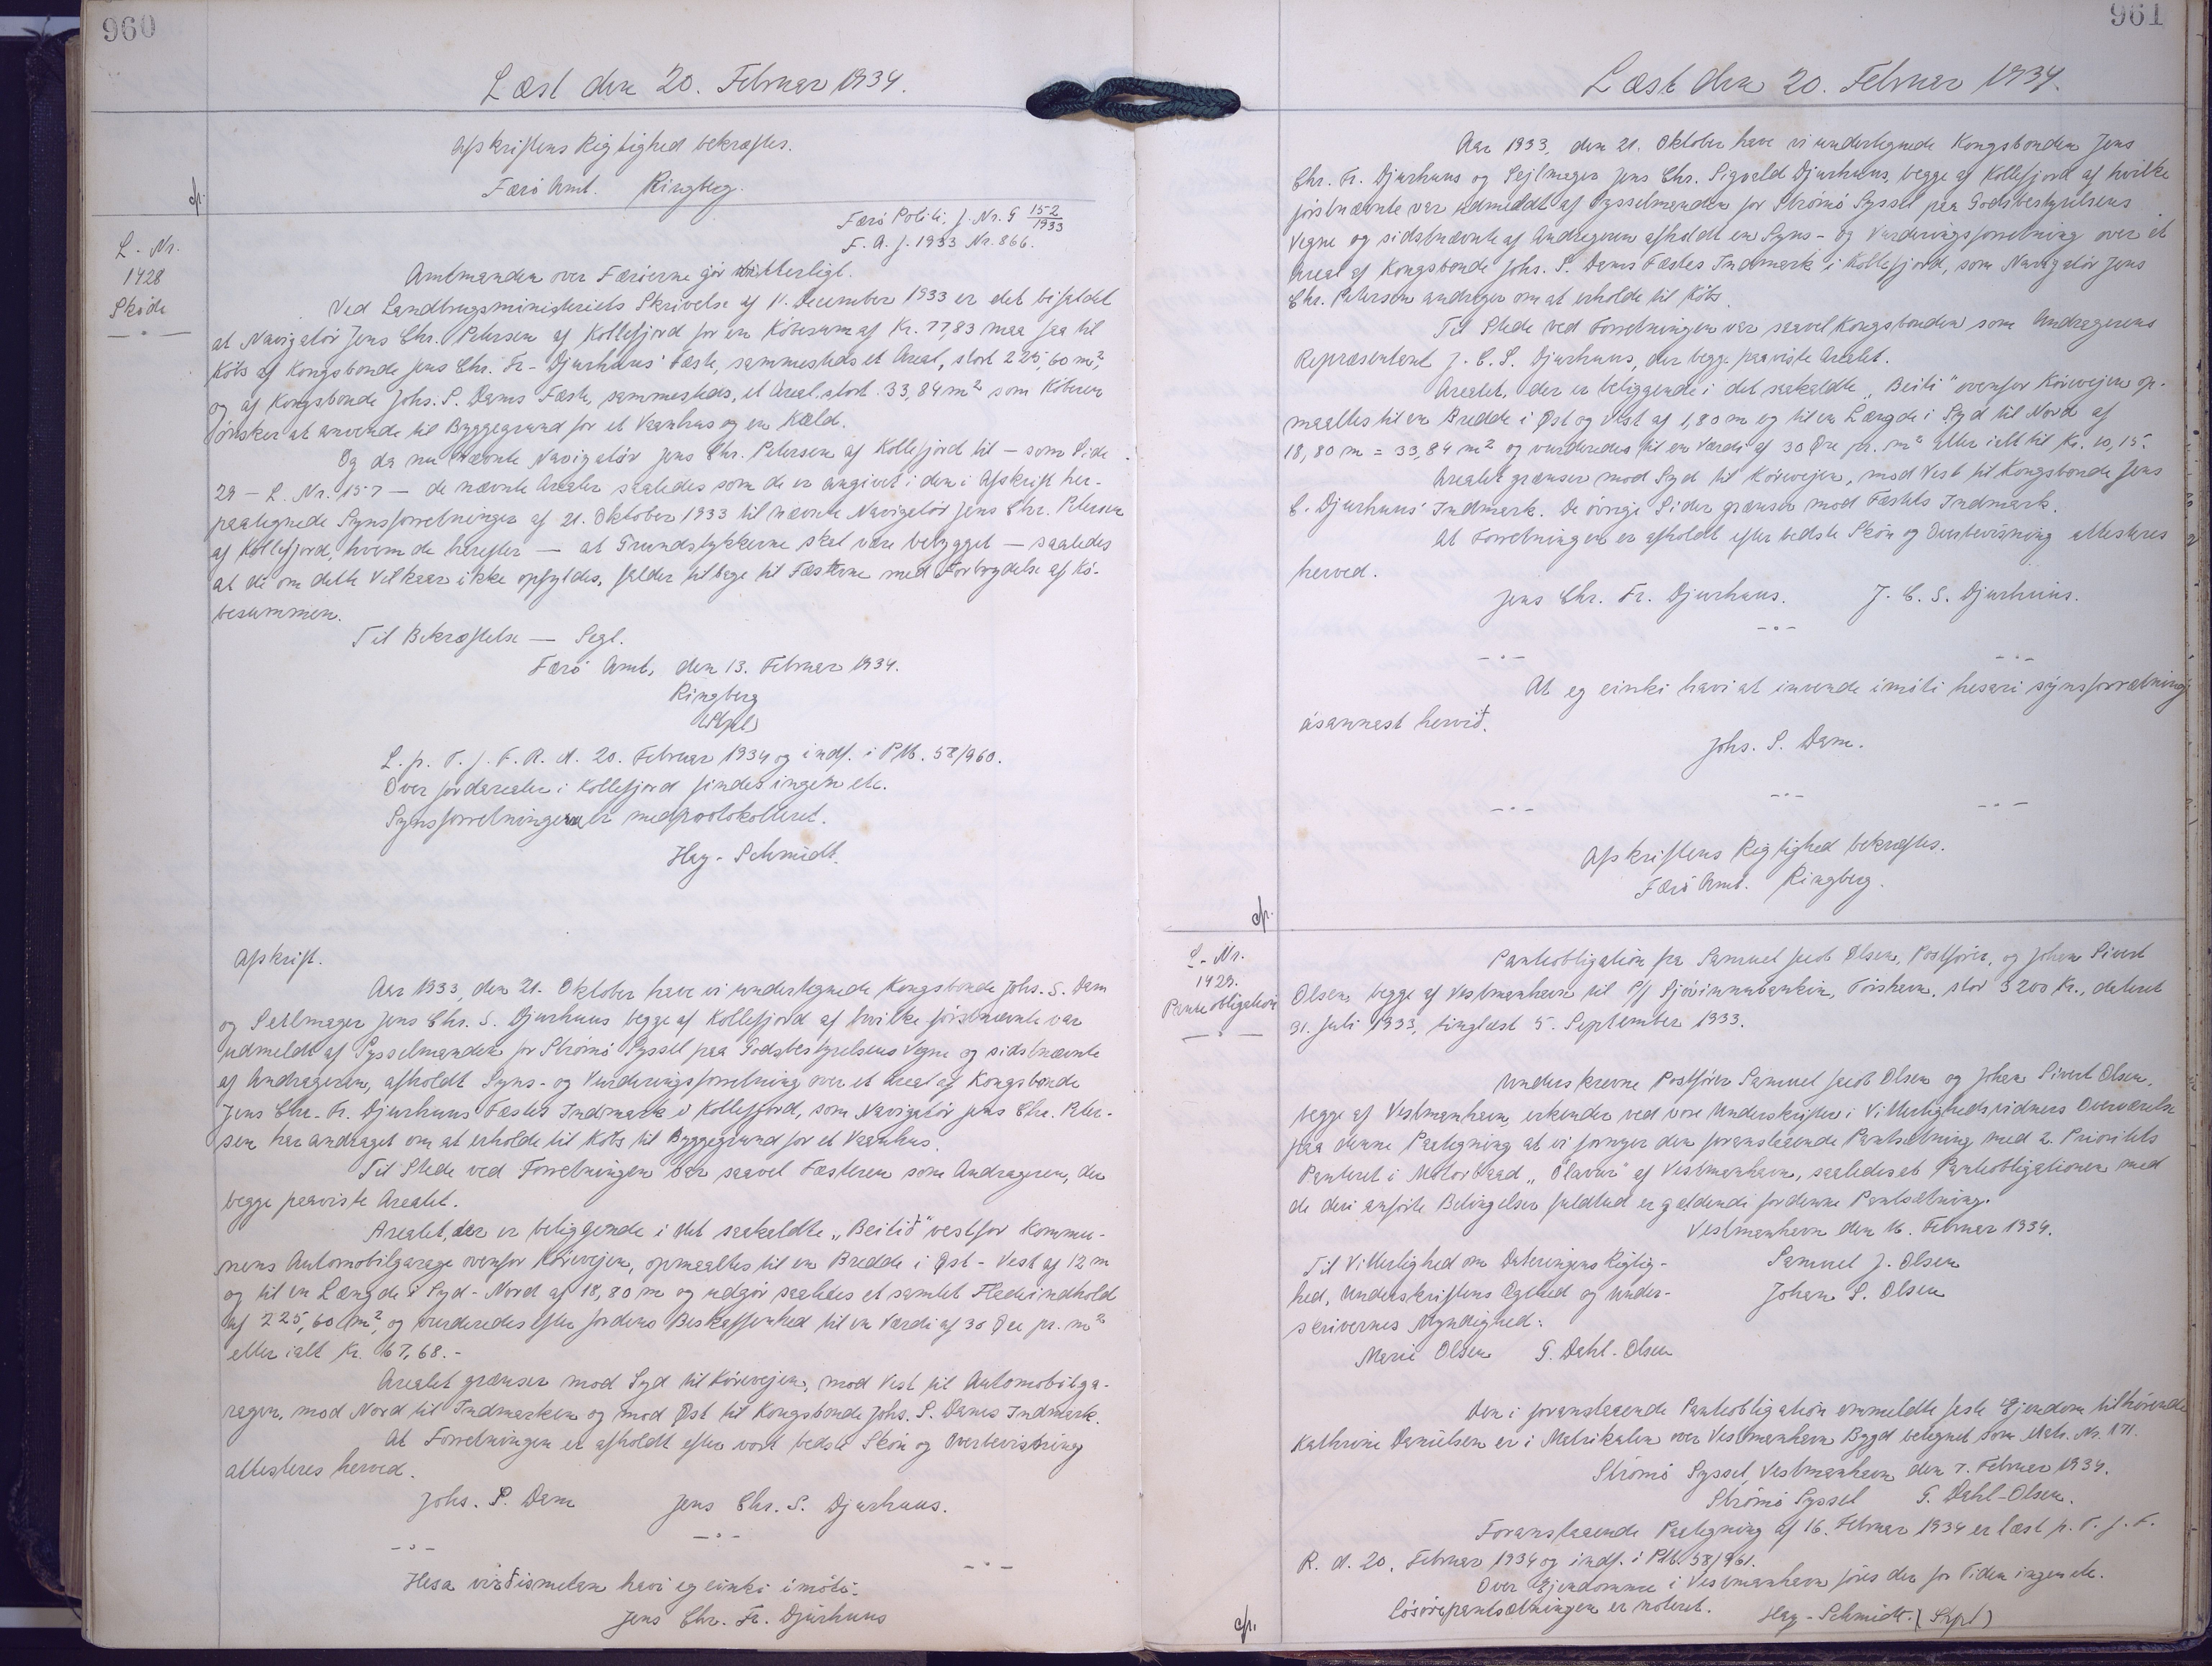 960
Læst den 20. Februar 1934.
Afskriftens Rigtighed bekræftes.
Færö Amt. Ringberg.
cf.
L. Nr.
1428
Sköde
Færö Politi. J. Nr. G 152/1933
F. A. J. 1933 Nr. 866.
Amtmanden over Færöerne gör vitterligt.
Ved Landbrugsministeriets Skrivelse af 11. December 1933 er det bifaldet
at Navigatör Jens Chr. Petersen af Kollefjord for en Köbesum af Kr. 77,83 maa faa til
Köbs af Kongsbonde Jens Chr. Fr. Djurhuus' Fæste, sammesteds et Areal, stort 225,60 m²,
og af Kongsbonde Johs. P. Dams Fæste, sammesteds, et Areal stort 33,84 m² som Köberen
önsker at anvende til Byggegrund for et Vaanhus og en Kæld.
Og da nu nævnte Navigatör Jens Chr. Petersen af Kollefjord til – som Side
29 – L. Nr. 157 – de nævnte Arealer saaledes som de er angivet i den i Afskrift her-
paategnede Synsforretninger af 21. Oktober 1933 til nævnte Navigatör Jens Chr. Petersen
af Kollefjord, hvem de herefter — at Grundstykkerne skal være bebygget — saaledes
at de om dette Vilkaar ikke opfyldes, falder tilbage til Fæsterne med Fortrydelse af Kö-
besummen.
Til Bekræftelse — Segl.
Færö Amt, den 13. Februar 1934.
Ringberg
(Stpl)
L. p. T. f. F. R. d. 20. Februar 1934 og indf. i P.M. 58/960.
Over Jordarealer i Kollefjord findes ingen etc.
Synsforretningerne er medprotokolleret.
Hay-Schmidt.
Afskrift.
Aar 1933, den 21. Oktober have vi undertegnede Kongsbonde Johs. S. Dam
og Sejlmager Jens Chr. S. Djurhuus begge af Kollefjord af hvilke förstnævnte var
udmeldt af Sysselmanden for Strömö Syssel paa Godsbestyrelsens Vegne og sidstnævnte
af Andrageren, afholdt Syns- og Vurderingsforretning over et Areal af Kongsbonde
Jens Chr. Fr. Djurhuus Fæstes Indmark i Kollefjord, som Navigatör Jens Chr. Peter-
sen har andraget om at erholde til Köbs til Byggegrund for et Vaanhus.
Til Stede ved Forretningen var saavel Fæsteren som Andrageren, der
begge paaviste Arealet.
Arealet, der er beliggende i det saakaldte „Beitið" vestfor Kommu-
nens Automobilgarage ovenfor Körevejen, opmaaltes til en Bredde i Øst - Vest af 12 m
og til en Længde i Syd - Nord af 18,80 m og udgör saaledes et samlet Fladeindhold
af 225,60 m², og vurderedes efter Jordens Beskaffenhed til en Værdi af 30 Øre pr. m²
eller ialt Kr. 67,68.-
Arealet grænser mod Syd til Körevejen, mod Vest til Automobilga-
ragen, mod Nord til Indmarken og mod Øst til Kongsbonde Johs. P. Dams Indmark.
At Forretningen er afholdt efter vort bedste Skön og Overbevisning
attesteres herved.
Johs. P. Dam Jens Chr. S. Djurhuus.
Hesa virðismetan havi eg einki imóti.
Jens Chr. Fr. Djurhuus
961
Læst den 20. Februar 1934.
Aar 1933, den 21. Oktober have vi undertegnede Kongsbonden Jens
Chr. Fr. Djurhuus og Sejlmager Jens Chr. Sigvald Djurhuus, begge af Kollefjord af hvilke
förstnævnte var udmeldt af Sysselmanden for Strömö Syssel paa Godsbestyrelsens
Vegne og sidstnævnte af Andrageren afholdt en Syns- og Vurderingsforretning over et
Areal af Kongsbonde Johs. P. Dams Fæstes Indmark i Kollefjord, som Navigatör Jens
Chr. Petersen andrager om at erholde til Köbs.
Til Stede ved Forretningen var saavel Kongsbonden som Andragerens
Repræsentant J. C. S. Djurhuus, der begge paaviste Arealet.
Arealet, der er beliggende i det saakaldte „Beiti" ovenfor Körevejen op-
maaltes til en Bredde i Øst og Vest af 1,80 m og til en Længde i Syd til Nord af
18,80 m = 33,84 m² og vurderedes til en Værdi af 30 Øre pr. m² eller ialt til Kr. 10,15.
Arealet grænser mod Syd til Körevejen, mod Vest til Kongsbonde Jens
C. Djurhuus' Indmark. De övrige Sider grænser mod Fæstets Indmark.
At Forretningen er afholdt efter bedste Skön og Overbevisning attesteres
herved.
Jens Chr. Fr. Djurhuus. J. C. S. Djurhuus.
At eg einki havi at invenda imóti hesari sýnsforrætning
ásannast hervið.
Johs. P. Dam.
Afskriftens Rigtighed bekræftes.
Færö Amt. Ringberg.
cf.
L. Nr.
1429.
Panteobligation
Panteobligation fra Samuel Jacob Olsen, Postförer, og Johan Sivert
Olsen, begge af Vestmanhavn til P/f Sjóvinnubankin, Tórshavn, stor 3200 Kr., dateret
31. Juli 1933, tinglæst 5. September 1933.
Underskrevne Postförer Samuel Jacob Olsen og Johan Sivert Olsen,
begge af Vestmanhavn, erkender ved vore Underskrifter i Vitterlighedsvidners Overværelse
paa denne Paategning at vi forøger den foranstaaende Pantsætning med 2. Prioritets
Panteret i Motorbaad „Olavur" af Vestmanhavn, saaledes at Panteobligationen med
de deri anförte Betingelser fuldtud er gældende for denne Pantsætning.
Vestmanhavn den 16. Februar 1934.
Til Vitterlighed om Dateringens Rigtig-
hed, Underskriftens Ægthed og Under-
skrivernes Myndighed:
Samuel J. Olsen
Johan S. Olsen
Marie Olsen G. Dahl-Olsen
Den i foranstaaende Panteobligation ommeldte faste Ejendom tilhörende
Kathrine Danielsen er i Matrikulen over Vestmanhavn Bygd betegnet som Matr. Nr. 171.
Strömö Syssel, Vestmanhavn den 7. Februar 1934.
Strömö Syssel G. Dahl-Olsen.
Foranstaaende Paategning af 16. Februar 1934 er læst p. T. f. F.
R. d. 20. Februar 1934 og indf. i P.M. 58/961.
Over Ejendomme i Vestmanhavn föres der for Tiden ingen etc.
Lösörepantsætningen er noteret. Hay-Schmidt. (Stpl)
cf.